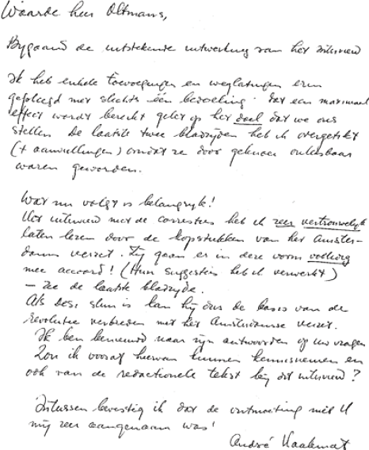 Waarde heer Oltmans,
Bijgaand de uitstekende uitwerking van het interview
Ik heb enkele toevoegingen en weglatingen erin
gepleegd met slechts één bedoeling: dat een maximaal
effect wordt bereikt gelet op het doel dat we ons
stellen. De laatste twee bladzijden heb ik overgetikt
(+ aanvullingen) omdat ze door geknoei onleesbaar
waren geworden.
Wat nu volgt is belangrijk!
Het interview met de correcties heb ik zeer vertrouwelijk
laten lezen door de kopstukken van het Amster-
dams verzet. Zij gaan er in deze vorm volledig
mee accoord! (Hun suggesties heb ik verwerkt)
– zie de laatste bladzijde.
Als Desi slim is kan hij dus de basis van de
revolutie verbreden met het Amsterdamse verzet.
Ik ben benieuwd naar zijn antwoorden op uw vragen
Zou ik vooraf hiervan kunnen kennisnemen en
ook van de redactionele tekst bij dit interview?
Intussen bevestig ik dat de ontmoeting met U
mij zeer aangenaam was!
André Haakmat